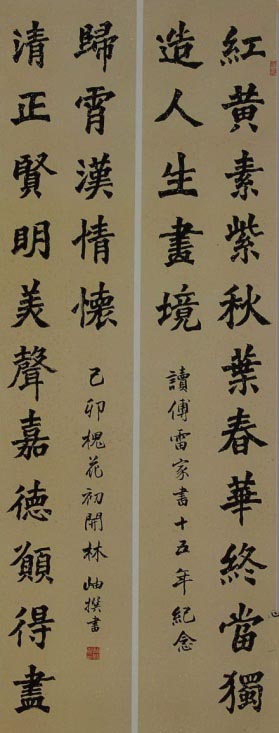 紅黄素紫秋葉春華終當獨
造人生畫境
讀傅雷家書十五年紀念
清正賢明美聲嘉德願得盡
歸霄漢情懷
己卯槐花初開林岫撰書